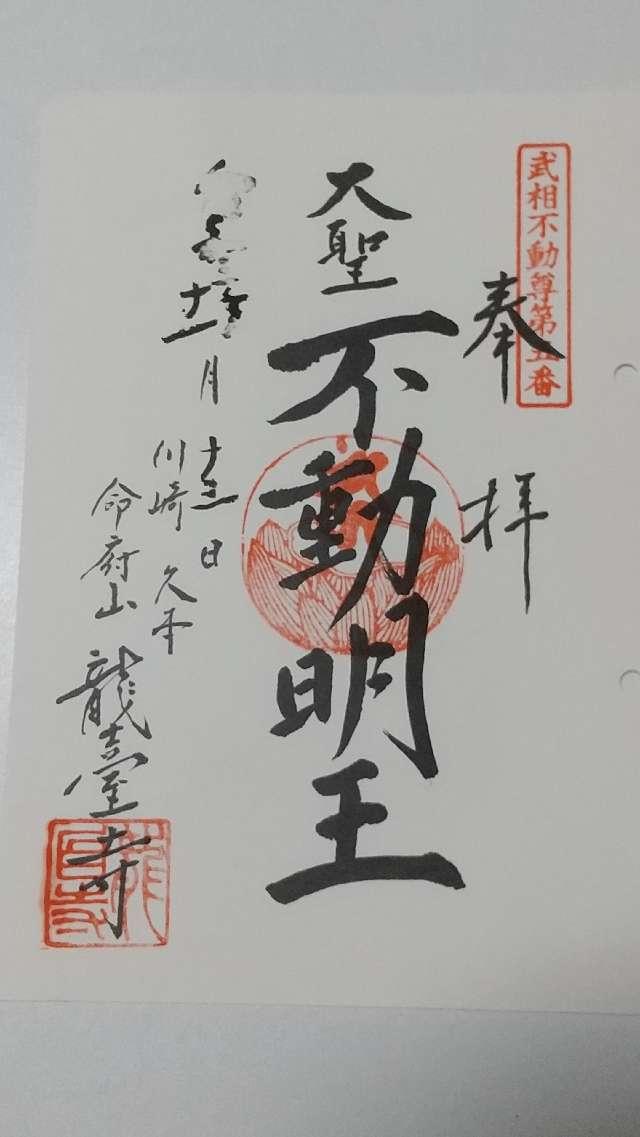 武相不動尊第五番
奉拝
大聖不動明王
十一月十三日
川崎 久本
命府山
龍臺寺